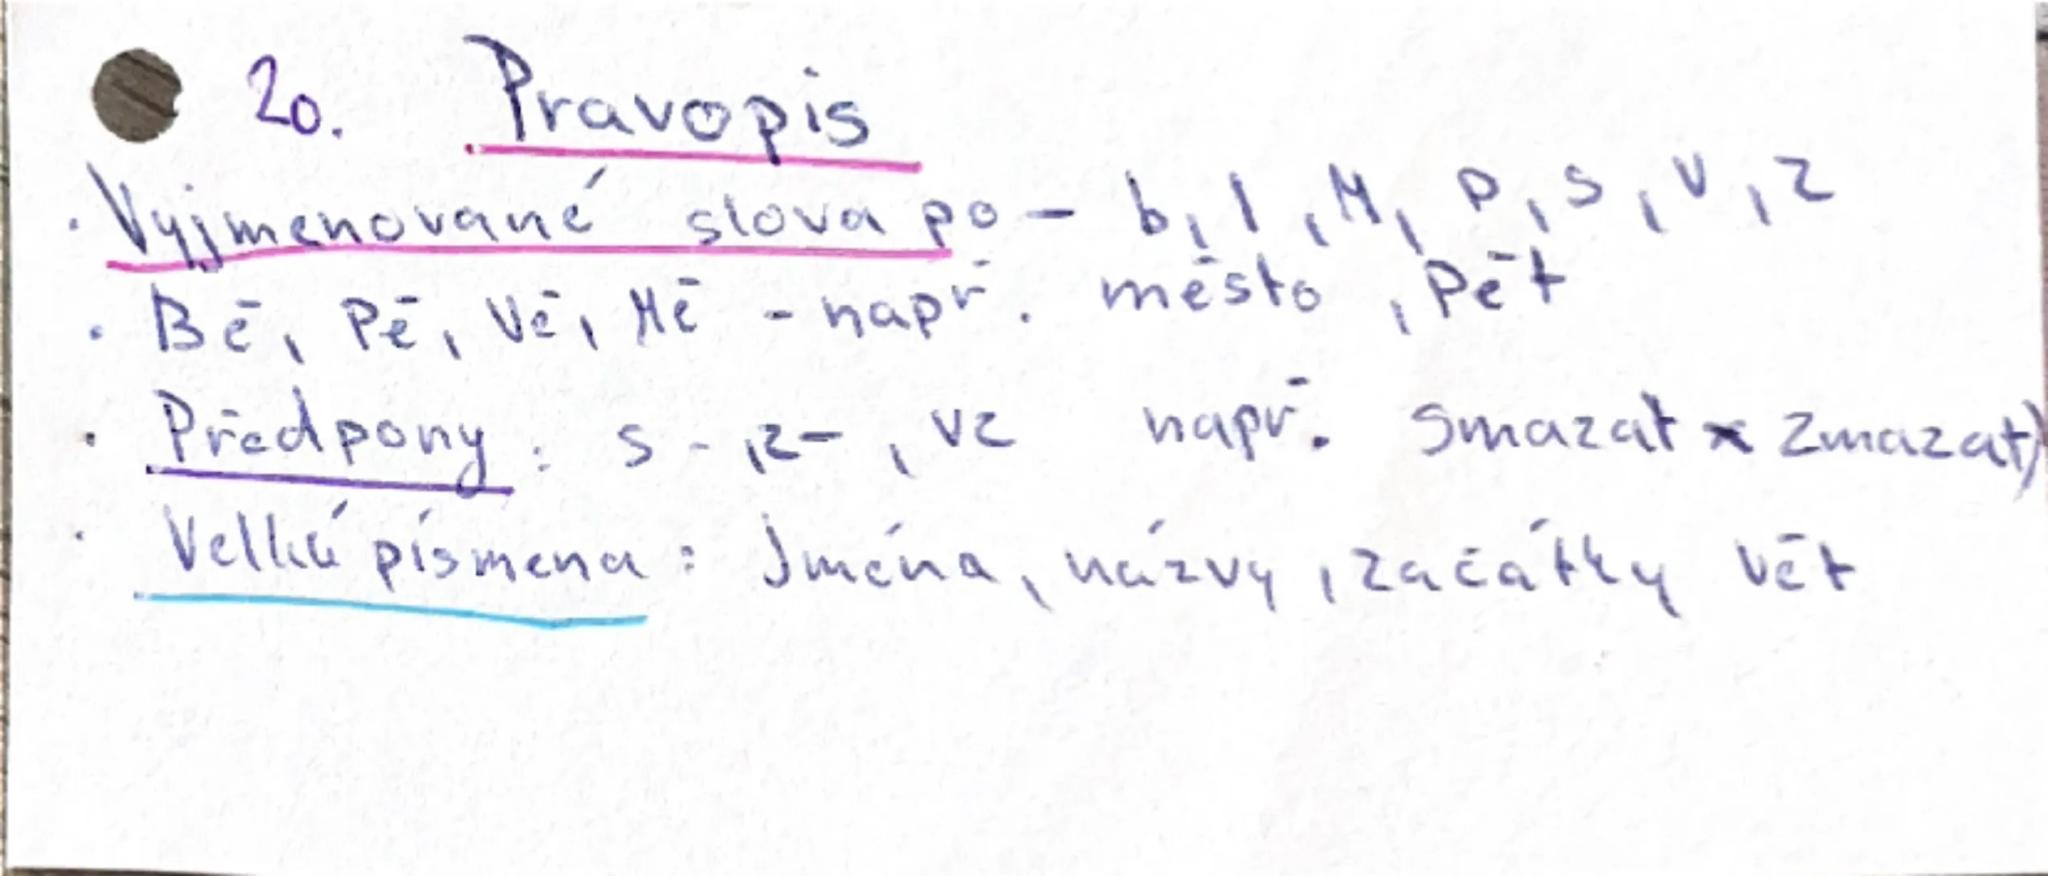 20. Pravopis
· Vyjmenované slova po - b, l, M, p, s, v, z
· Bě, Pě, Vě, Mě - např. město, Pět
· Předpony: s-, z-, vz např. smazat x zmazat)
· Velká písmena: Jména, názvy, začátky vět